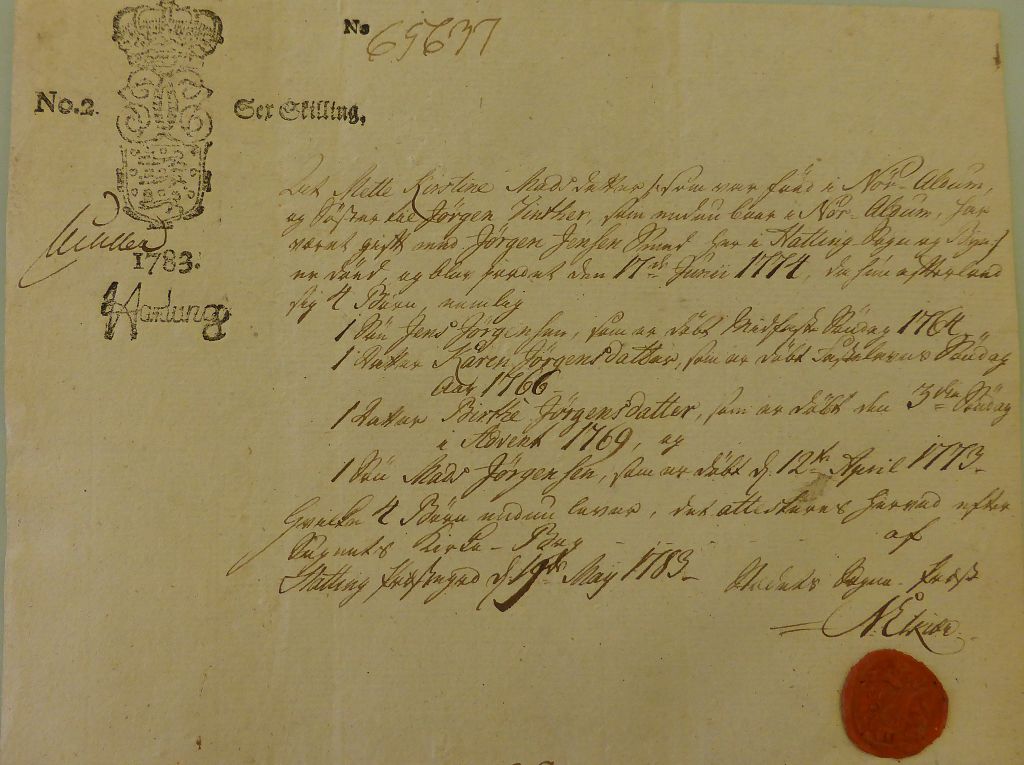 No 65637
No.2. Sex Skilling,
1783.
Hartung
At Mette Kirstine Mads datter, som var föed i Nör-Aldum,
og Söster til Jörgen Vinther, som endnu boer i Nör-Aldum, har
været gift med Jörgen Jensen Smed her i Hatting Sogn og Bye,
er död, og blev jordet den 17de Junii 1774, da hun efterlod
sig 4 Börn, nemlig
1 Sön Jens Jörgensen, som er döbt Midfaste Söndag 1764
1 Datter Karen Jörgensdatter, som er döbt Fastelavns Söndag
Aar 1766
1 Datter Birthe Jörgensdatter, som er döbt den 3die Söndag
i Advent 1769, og
1 Sön Mads Jörgensen, som er döbt d. 12te April 1773
Hvilke 4 Börn endnu lever, det attesteres herved efter
Sognets Kirke-Bog af
Hatting Præstegaard d. 19de May 1783 Stedets Sogne-Præst